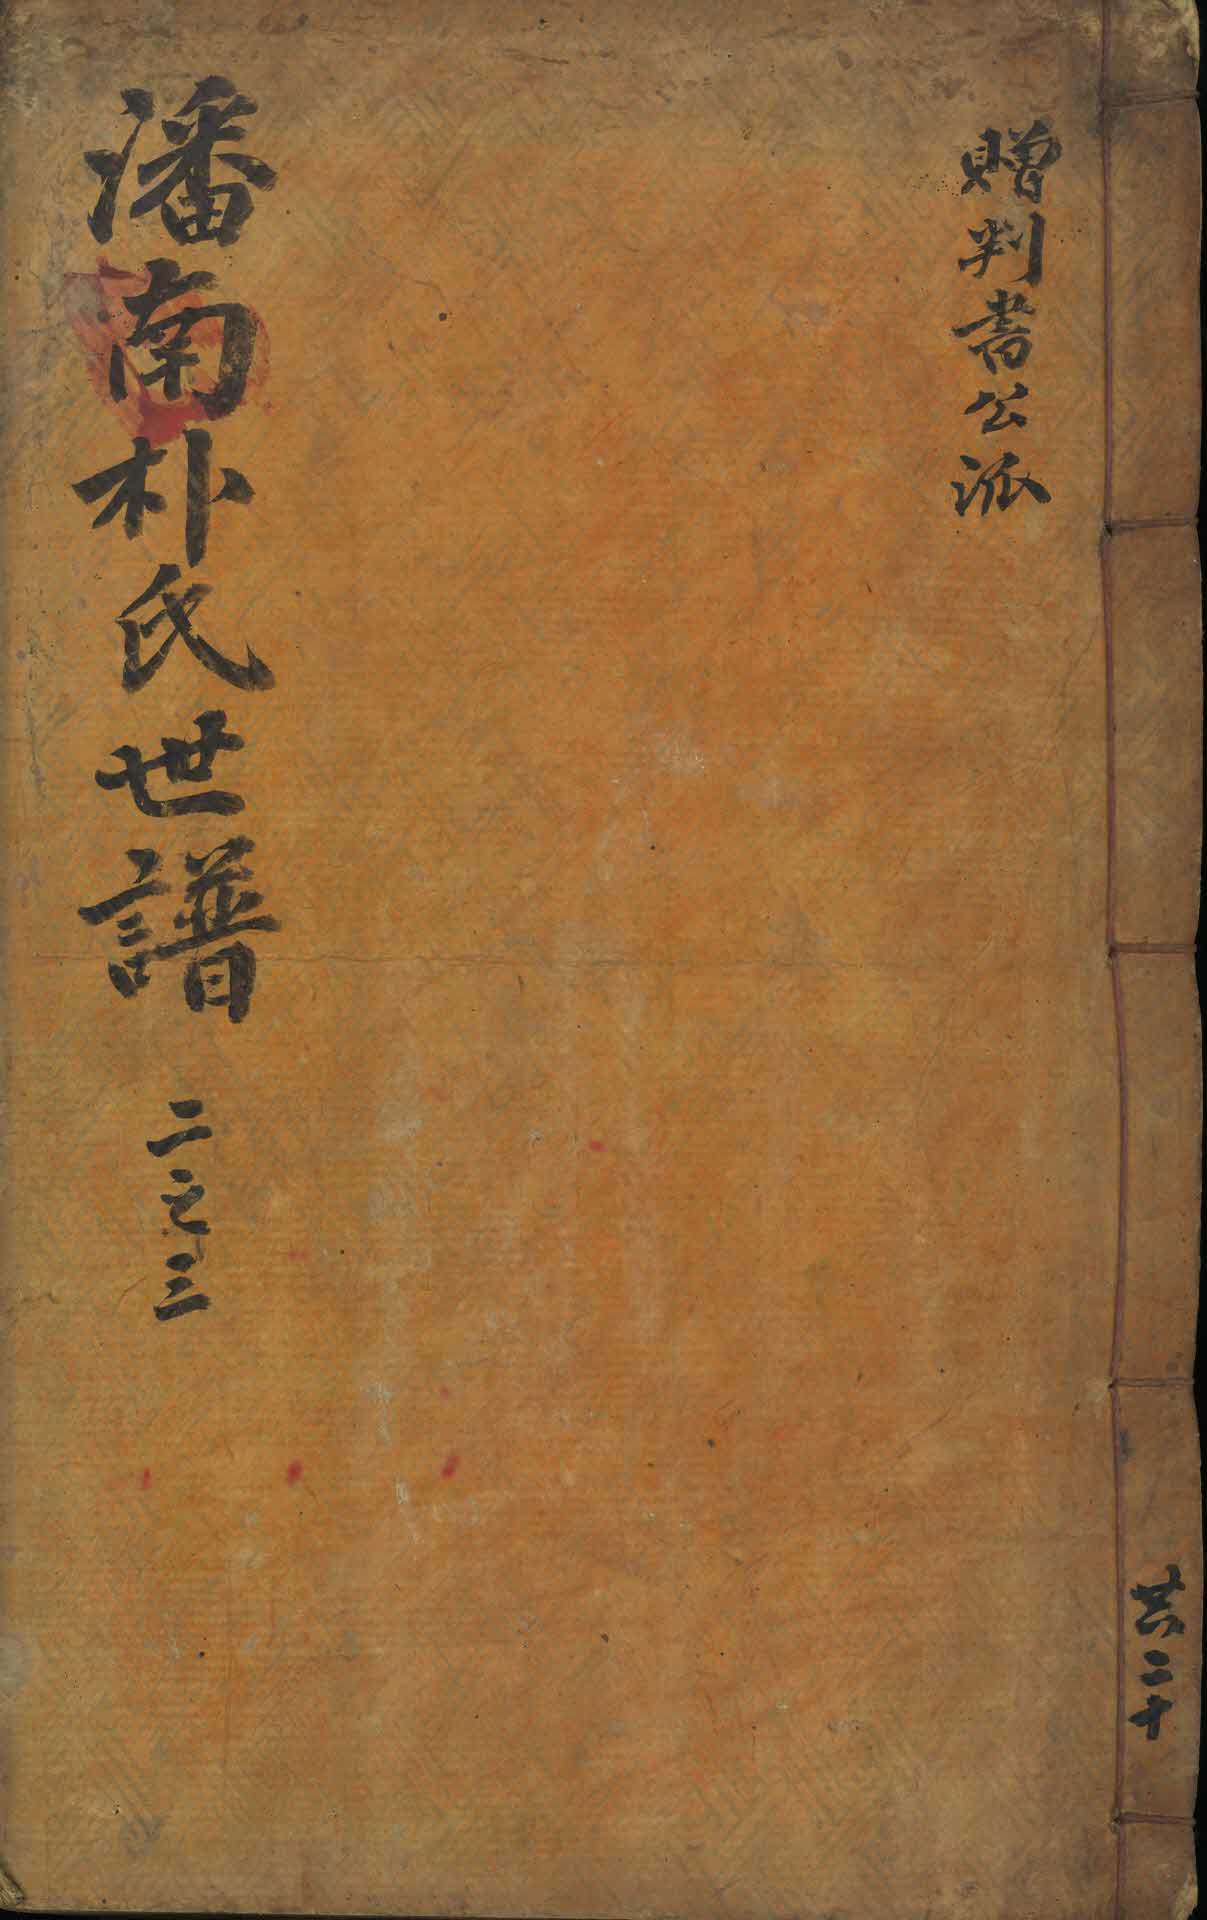 贈判書公派
潘南朴氏世譜 二之三
共二十